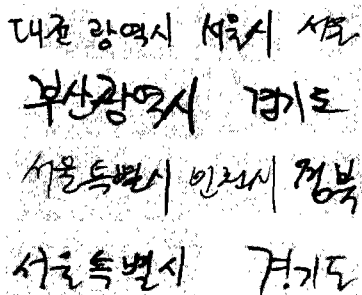 대전 광역시 서울시 서울
부산광역시 경기도
서울특별시 인천시 경북
서울특별시 경기도